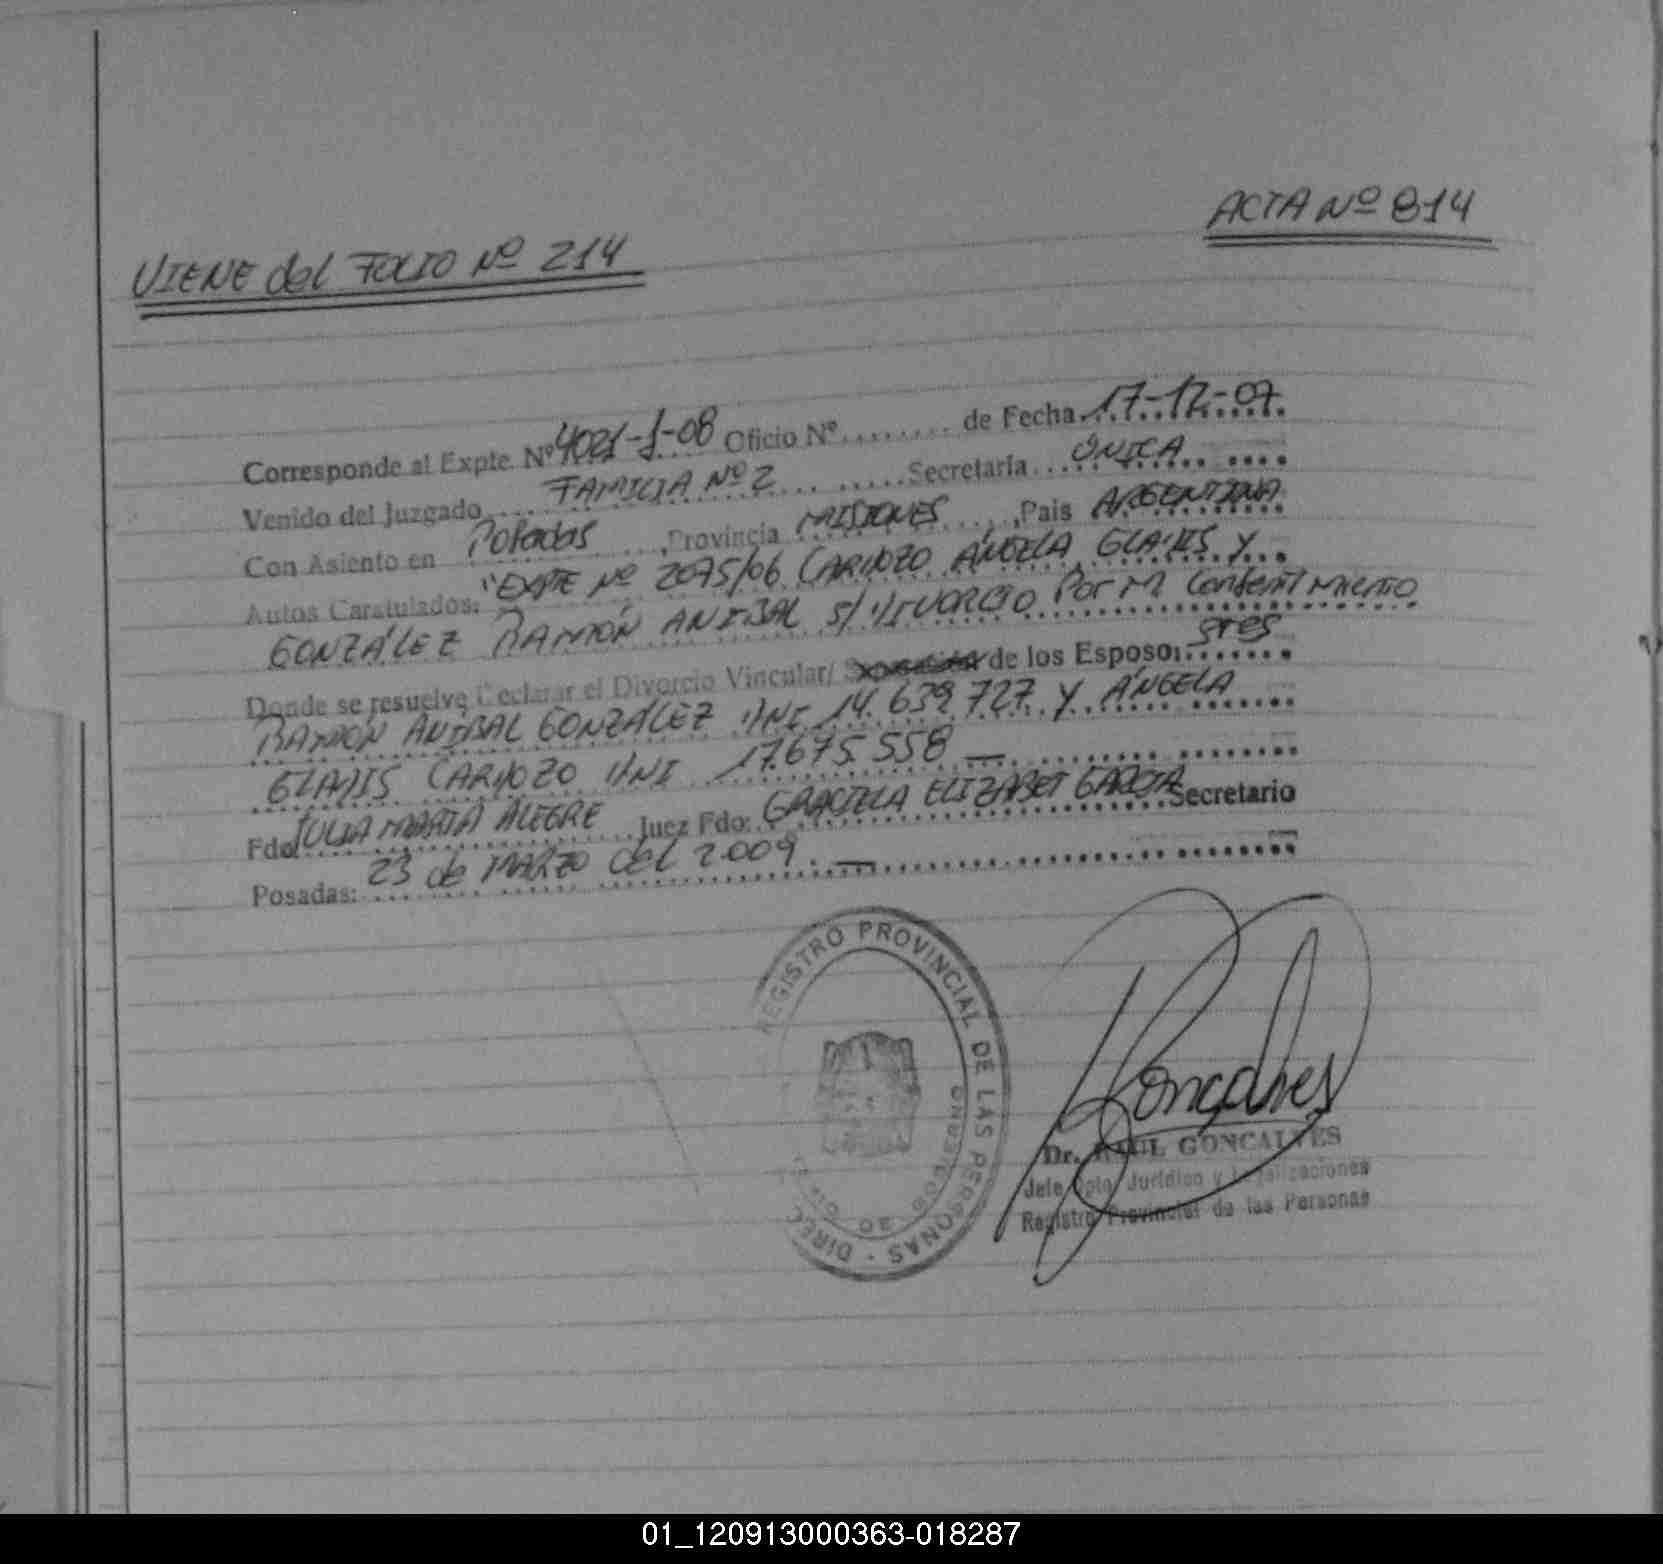 ACTA Nº 814
VIENE del FOLIO Nº 214
Corresponde al Expte. Nº 4021-J-08 Oficio Nº......... de Fecha 17-12-07
Venido del Juzgado FAMILIA Nº 2 Secretaría ÚNICA
Con Asiento en Posadas, Provincia MISIONES, Pais ARGENTINA
Autos Caratulados: "EXPTE Nº 2075/06 CARDOZO ÁNGELA GLADIS Y
GONZÁLEZ RAMÓN ANIBAL S/ DIVORCIO Por M Consentimiento
Donde se resuelve Declarar el Divorcio Vincular/ de los Esposo: sres
RAMÓN ANIBAL GONZÁLEZ DNI 14.639.727 Y ÁNGELA
GLADIS CARDOZO DNI 17.675.558 —
Fdo JULIA MARTA ALEGRE Juez Fdo: GRACIELA ELIZABET GARCIA Secretario
Posadas: 23 de MARZO del 2.009. —
REGISTRO PROVINCIAL DE LAS PERSONAS - DIREC
Gonçalves
Dr. RAUL GONCALVES
Jefe Dpto. Jurídico y Legalizaciones
Registro Provincial de las Personas
01_120913000363-018287